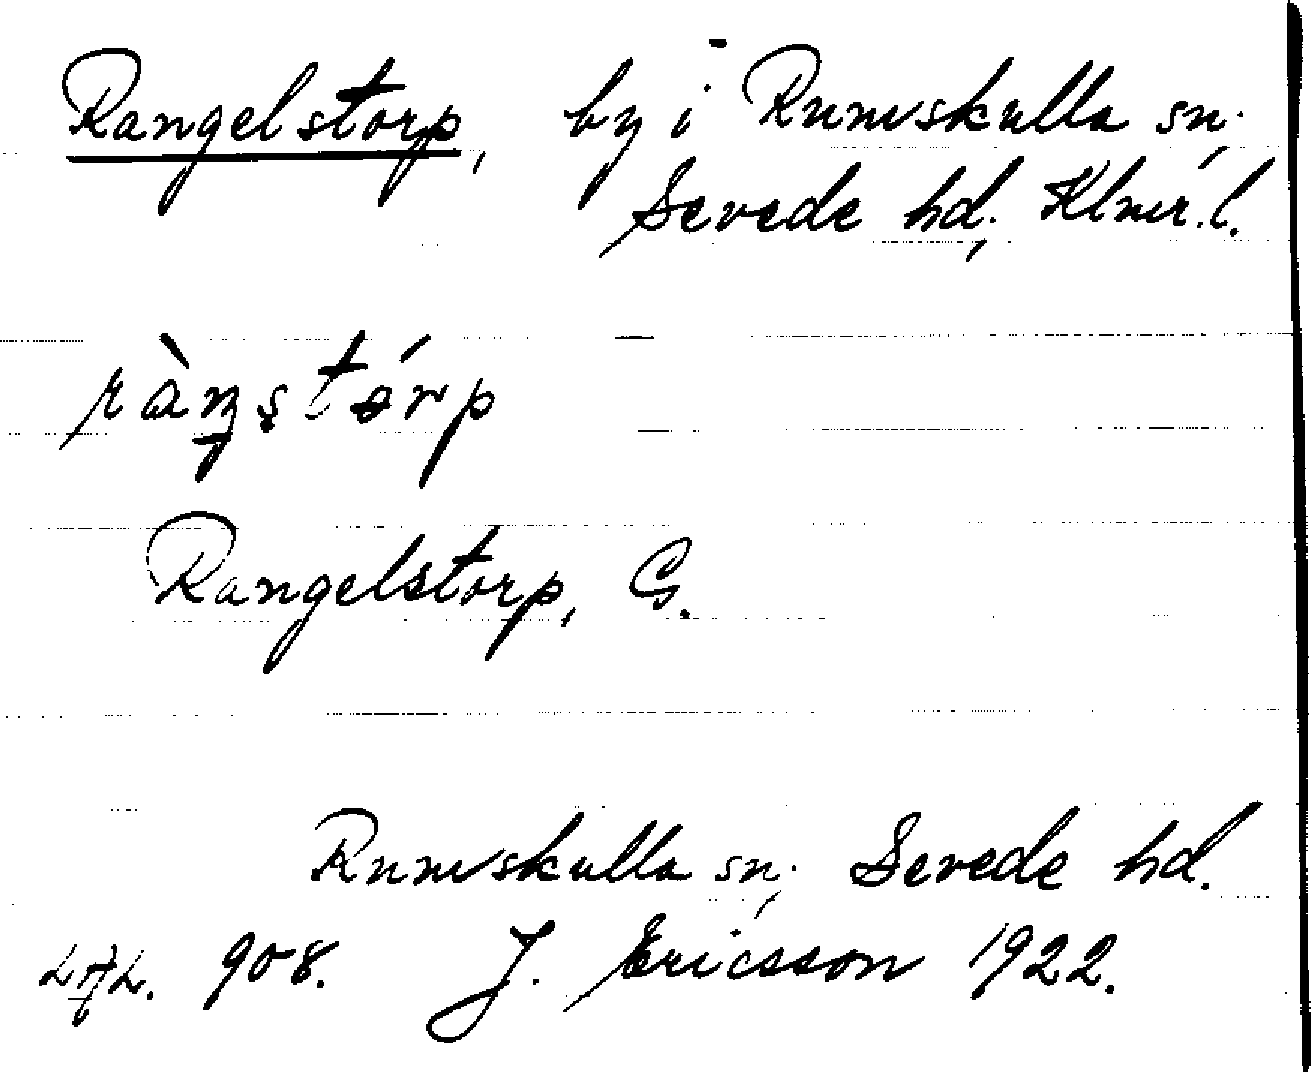 Rangelstorp, by i Rumskulla sn.
Sevede hd. Klmr. l.
ràŋstórp
Rangelstorp, G.
Rumskulla sn. Sevede hd.
908. J. Ericsson 1922.